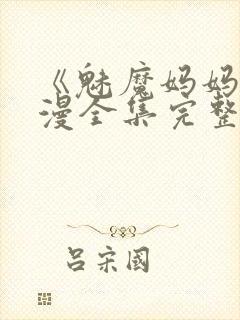 《魅魔妈妈
漫全集完整
吕宋国